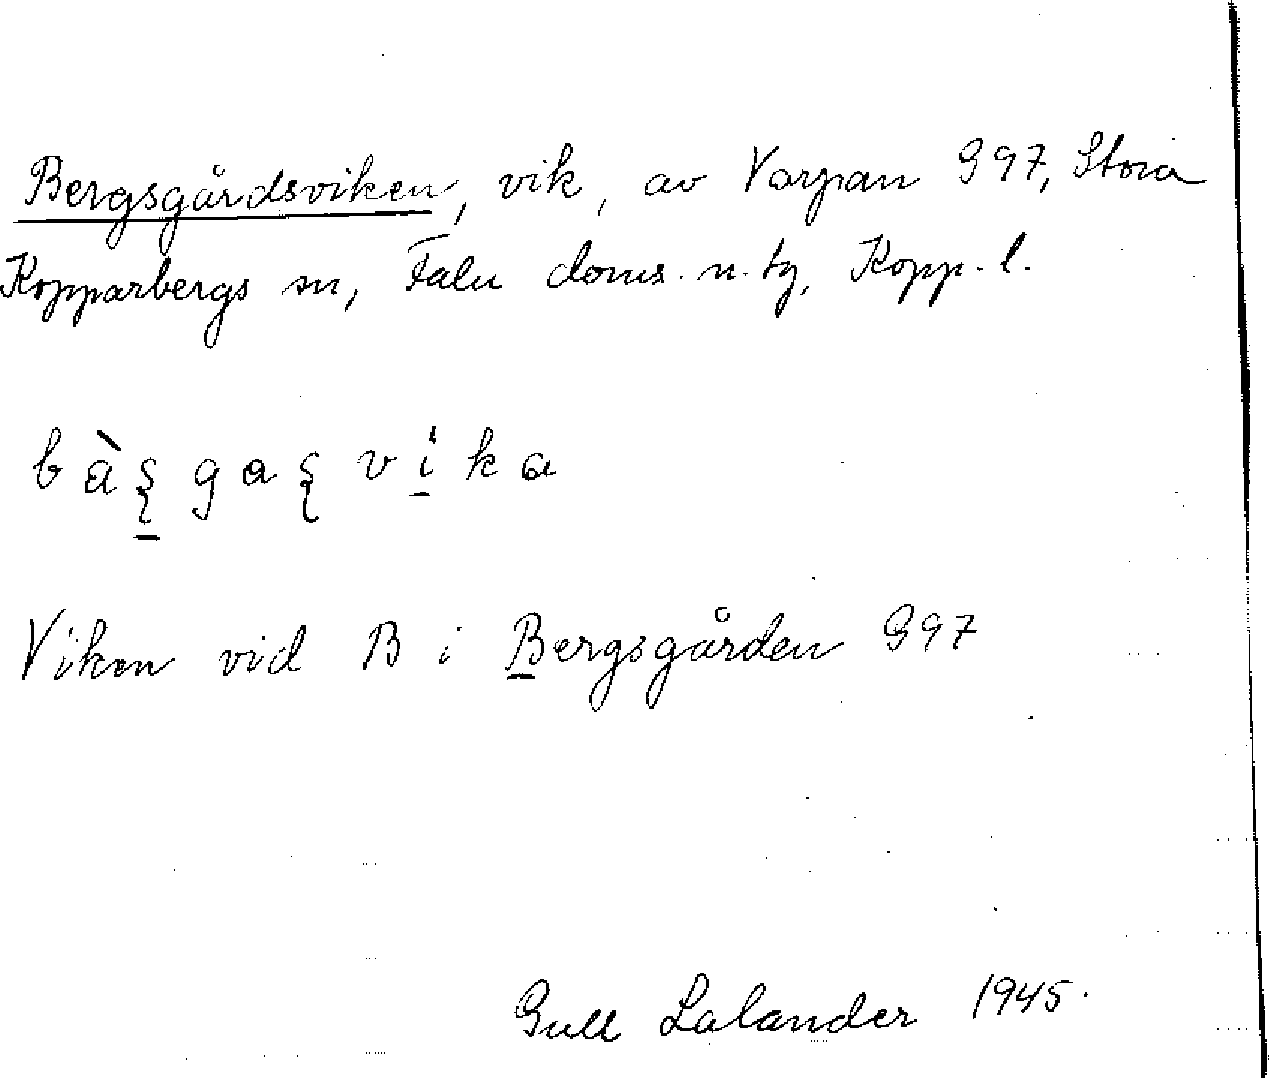 Bergsgårdsviken, vik, av Varpan G97, Stora
Kopparbergs sn, Falu doms. n. tg, Kopp. l.
bàʂgaʂvika
Viken vid B i Bergsgården G97
Gull Lalander 1945.